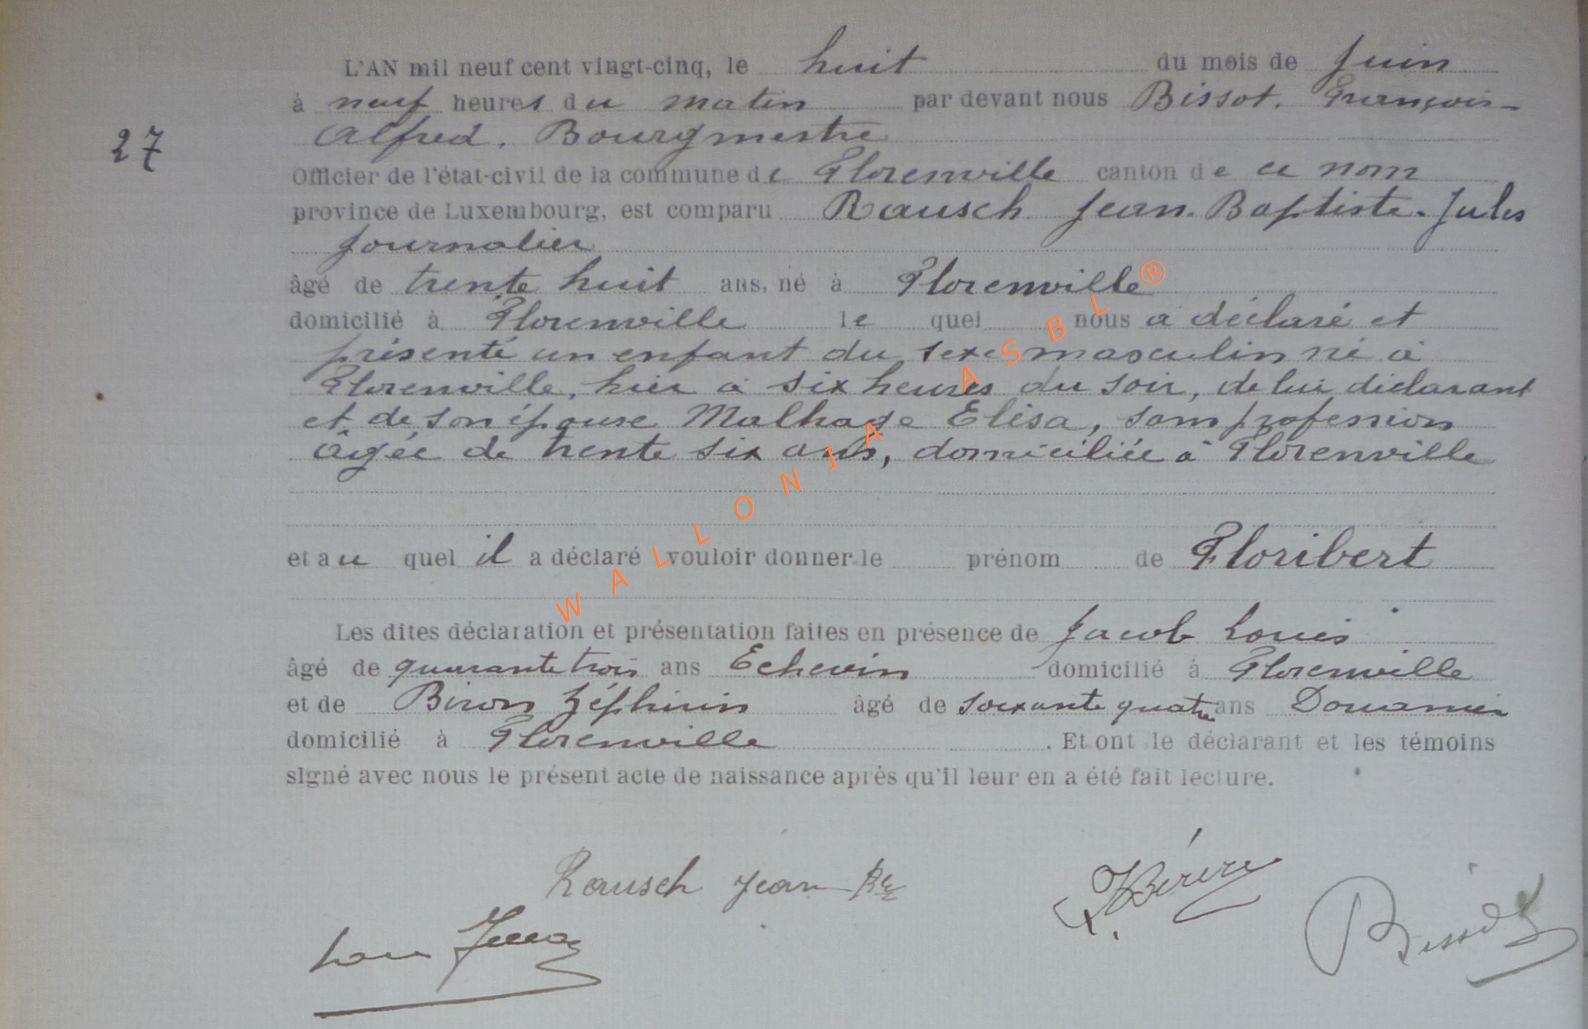 L'AN mil neuf cent vingt-cinq, le huit du mois de Juin
à neuf heures du matin par devant nous Bissot. François-
27 Alfred. Bourgmestre
Officier de l'état-civil de la commune de Florenville canton de ce nom
province de Luxembourg, est comparu Rausch Jean-Baptiste-Jules
Journalier
âgé de trente huit ans, né à Florenville
domicilié à Florenville le quel nous a déclaré et
présenté un enfant du sexe masculin né à
Florenville, hier à six heures du soir, de lui déclarant
et de son épouse Malhage Elisa, sans profession
âgée de trente six ans, domiciliée à Florenville
WALLONIA ASBL®
et au quel il a déclaré vouloir donner le prénom de Floribert
Les dites déclaration et présentation faites en présence de Jacob Louis
âgé de quarante trois ans Echevin domicilié à Florenville
et de Biron Zéphirin âgé de soixante quatre ans Douanier
domicilié à Florenville . Et ont le déclarant et les témoins
signé avec nous le présent acte de naissance après qu'il leur en a été fait lecture.
Rausch Jean Bte
Bissot